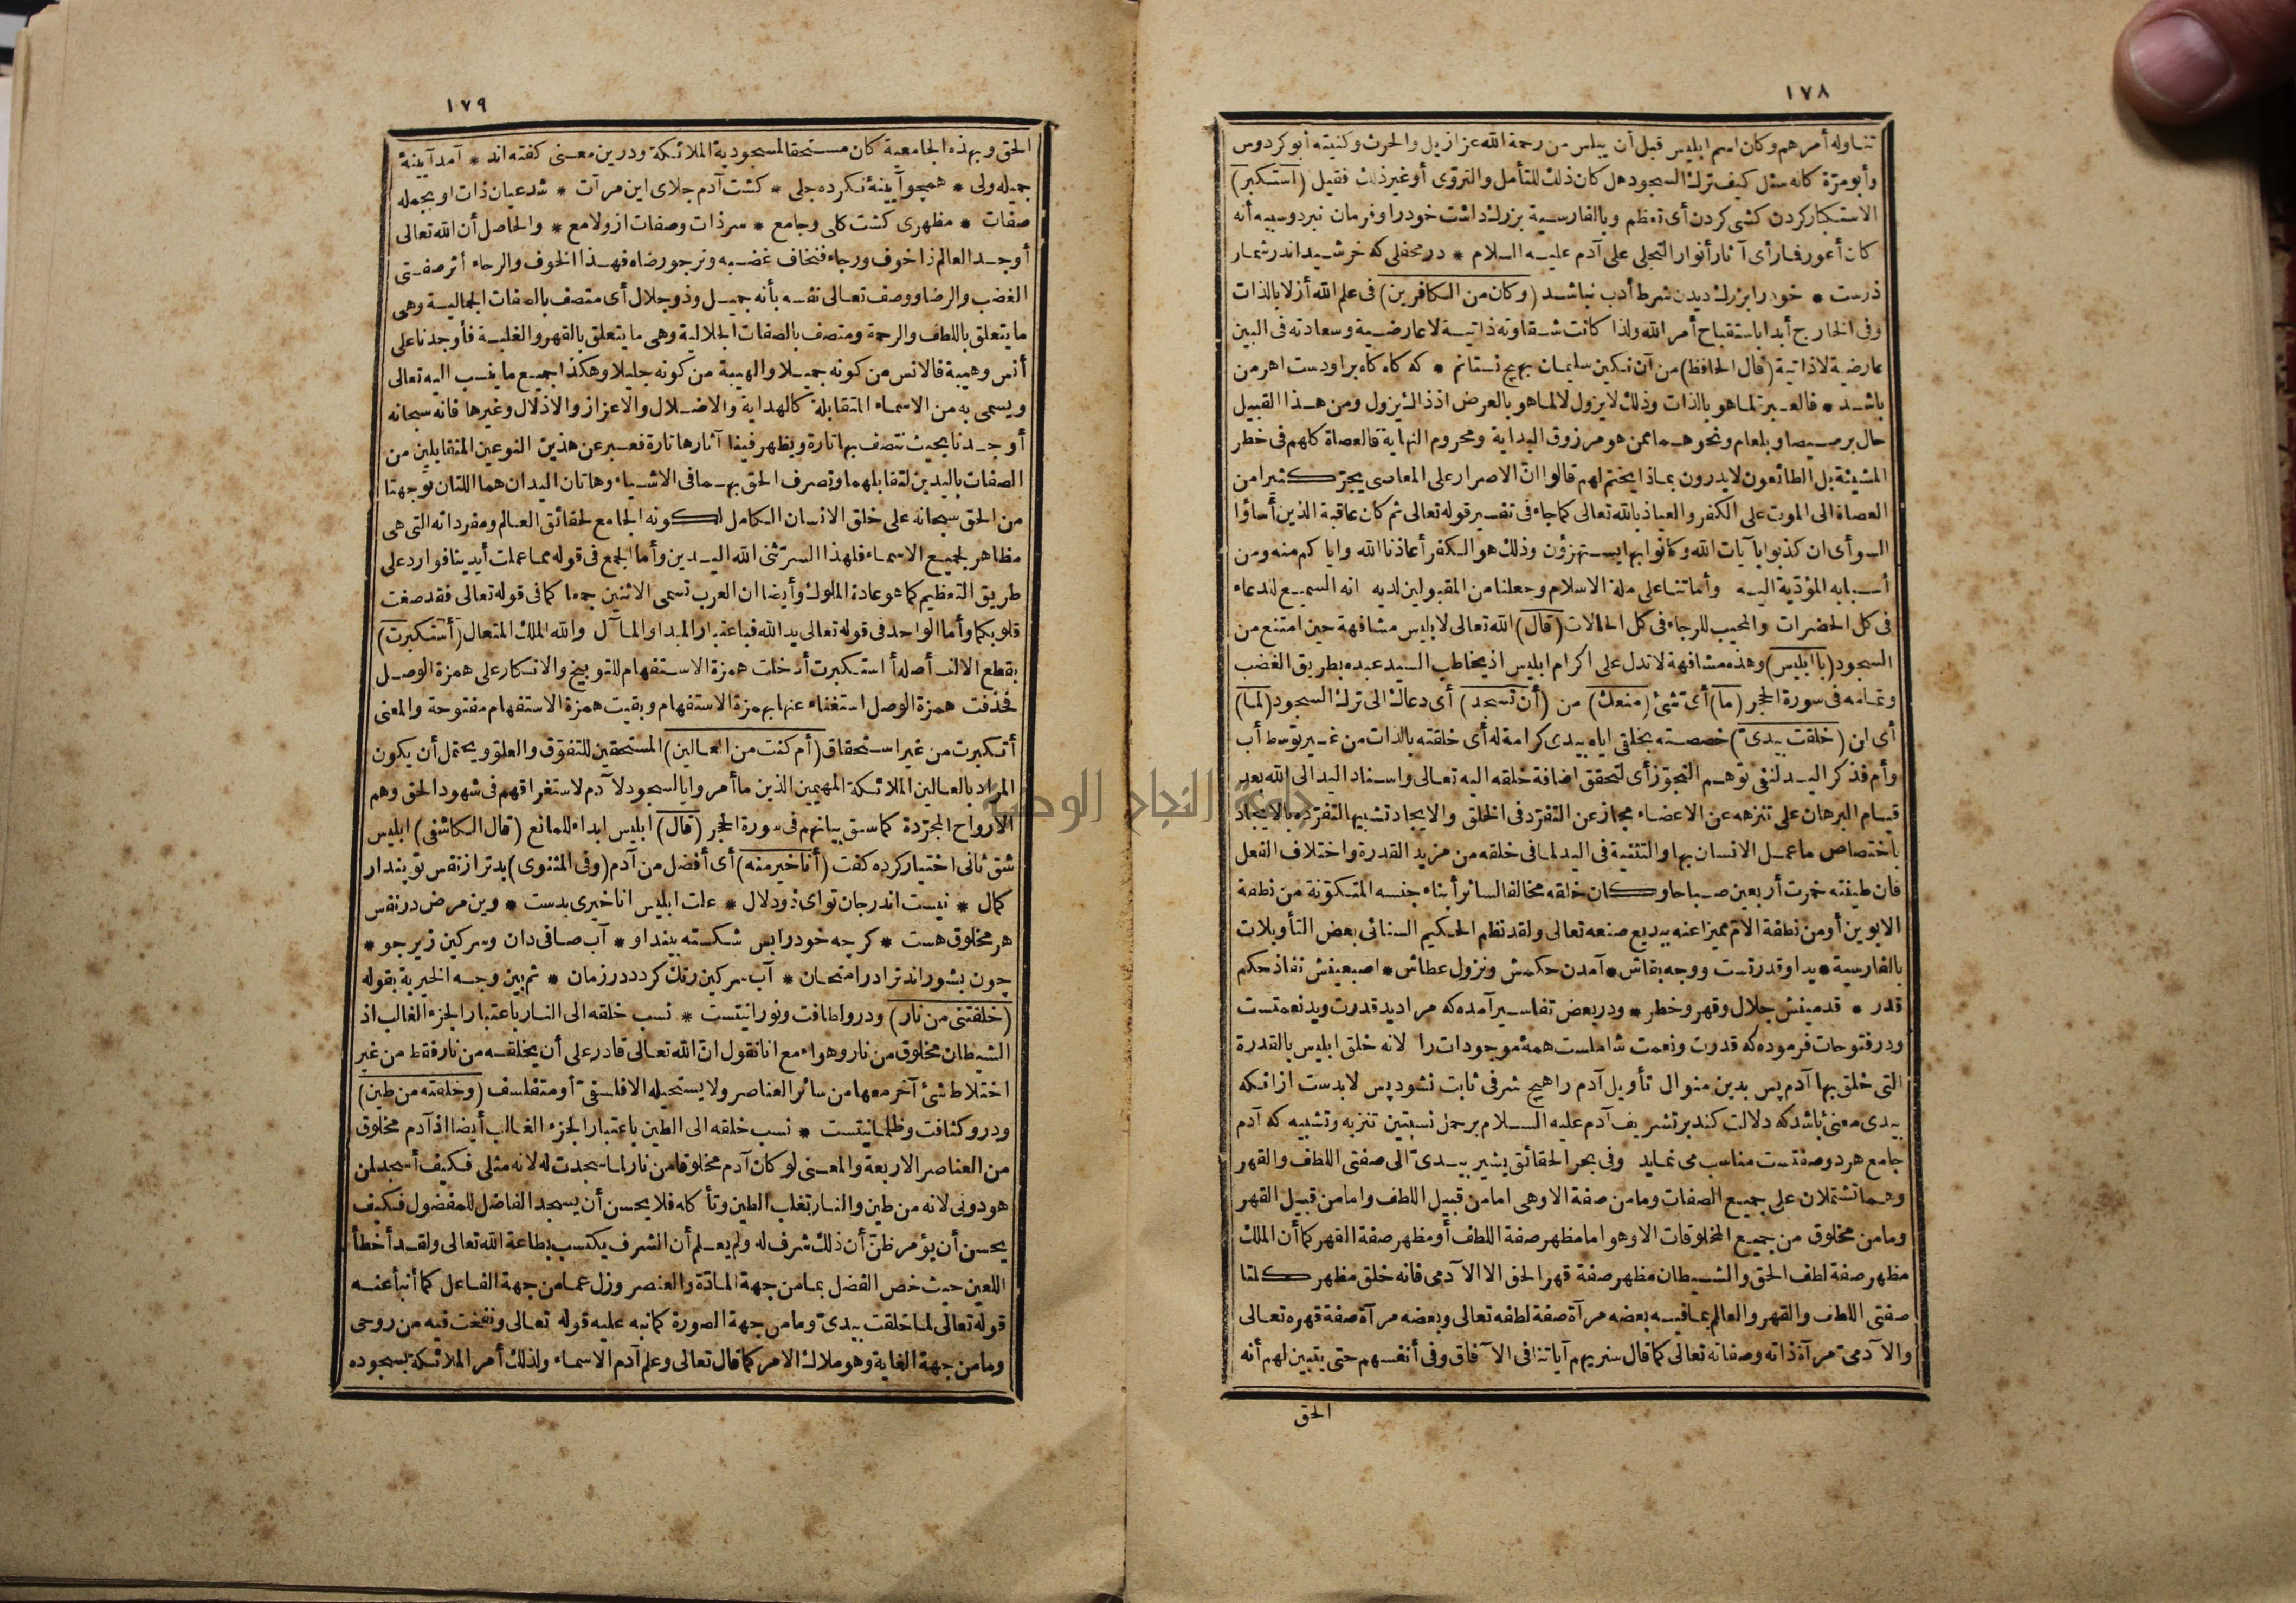 ١٧٨
تناوله أمرهم وكان اسم ابليس قبل أن يبلس من رحمة الله عزازيل والحرث وكنيته أبو كردوس
وأبو مرّة كانه سئل كيف ترك السجود هل كان ذلك للتأمل والتروّى أو غير ذلك فقيل (استكبر)
الاستكبار كردن كشى كردن أى تعظم وبالفارسية بزرك داشت خود را وفرمان نبرد وسببه أنه
كان أعور فما رأى آثار أنوار التجلى على آدم عليه السلام * در محفلى كه خرشيد اندر شمار
ذرست * خود را بزرك ديدن شرط أدب نباشد (وكان من الكافرين) فى علم الله أزلا بالذات
وفى الخارج أبدا باستقباح أمر الله ولذا كانت شقاوته ذاتية لا عارضية وسعادته فى البين
عارضية لا ذاتية (قال الحافظ) من آن نكين سليمان بهيچ نستانم * كه كاه كاه برا ودست اهرمن
باشد * فالعبرة لما هو بالذات وذلك لا يزول لا لما هو بالعرض اذ ذاك يزول ومن هذا القبيل
حال برصيصا وبلعام ونحوهما ممن هو مرزوق البداية ومحروم النهاية فالعصاة كلهم فى خطر
المشيئة بل الطائعون لا يدرون بماذا يختم لهم قالوا انّ الاصرار على المعاصى يجرّ كثيرا من
العصاة الى الموت على الكفر والعياذ بالله تعالى كما جاء فى تفسير قوله تعالى ثم كان عاقبة الذين أساؤا
السوأى ان كذبوا بآيات الله وكانوا بها يستهزؤن وذلك هو الكفر أعاذنا الله واياكم منه ومن
أسبابه المؤدّية اليه وأماتنا على ملة الاسلام وجعلنا من المقبولين لديه انه السميع للدعاء
فى كل الحضرات والمجيب للرجاء فى كل الحالات (قال) الله تعالى لابليس مشافهة حين امتنع من
السجود (يا ابليس) وهذه مشافهة لا تدل على اكرام ابليس اذ يخاطب السيد عبده بطريق الغضب
وتمامه فى سورة الحجر (ما) أى شئ (منعك) من (أن تسجد) أى دعاك الى ترك السجود (لما)
أى ان (خلقت بيدىّ) خصصته بخلقى اياه بيدى كرامة له أى خلقته بالذات من غير توسط أب
وأم فذكر اليد لنفى توهم التجوّز أى لتحقق اضافة خلقه اليه تعالى واسناد اليد الى الله بعد
قيام البرهان على تنزهه عن الاعضاء مجاز عن التفرّد فى الخلق والايجاد تشبيها لتفرّده بالايجاد
باختصاص ما عمل الانسان بها والتثنية فى اليد لما فى خلقه من مزيد القدرة واختلاف الفعل
فان طينته خمرت أربعين صباحا وكان خلقه مخالفا لسائر أبناء جنسه المتكوّنة من نطفة
الابوين أو من نطفة الامّ مميزا عنه ببديع صنعه تعالى ولقد نظم الحكيم السنائى بعض التأويلات
بالفارسية * يد او قدرتست ووجه بقاش * آمدن حكمش ونزول عطاش * اصبعينش نفاذ حكم
قدر * قدمينش جلال وقهر وخطر * ودر بعض تفاسير آمده كه مراد يد قدرت ويد نعمتست
ودر فتوحات فرموده كه قدرت ونعمت شاملست همۀ موجودات را لانه خلق ابليس بالقدرة
التى خلق بها آدم پس بدين منوال تأويل آدم را هيچ شرفى ثابت نشود پس لابدست از انكه
بيدى معنئ باشد كه دلالت كند بر تشريف آدم عليه السلام بر حمل نسبتين تنزيه وتشبيه كه آدم
جامع هر دو صفتست مناسب مى نمايد وفى بحر الحقائق يشير بيدىّ الى صفتى اللطف والقهر
وهما تشتملان على جميع الصفات وما من صفة الا وهى اما من قبيل اللطف واما من قبيل القهر
وما من مخلوق من جميع المخلوقات الا وهو اما مظهر صفة اللطف أو مظهر صفة القهر كما أن الملك
مظهر صفة لطف الحق والشيطان مظهر صفة قهر الحق الا الآدمى فانه خلق مظهر كلتا
صفتى اللطف والقهر والعالم بما فيه بعضه مرآة صفة لطفه تعالى وبعضه مرآة صفة قهره تعالى
والآدمىّ مرآة ذاته وصفاته تعالى كما قال سنريهم آياتنا فى الآفاق وفى أنفسهم حتى يتبين لهم أنه
الحق
١٧٩
الحق وبهذه الجامعية كان مستحقا لمسجودية الملائكة ودرين معنى كفته اند * آمد آيينۀ
جميله ولى * همچو آيينۀ نكرده جلى * كشت آدم جلاى اين مرآت * شد عيان ذات او بجمله
صفات * مظهرى كشت كلى وجامع * سر ذات وصفات ازو لامع * والحاصل أن الله تعالى
أوجد العالم ذا خوف ورجاء فنخاف غضبه ونرجو رضاه فهذا الخوف والرجاء أثر صفتى
الغضب والرضا ووصف تعالى نفسه بأنه جميل وذو جلال أى متصف بالصفات الجمالية وهى
ما يتعلق باللطف والرحمة ومتصف بالصفات الجلالية وهى ما يتعلق بالقهر والغلبة فأوجدنا على
أنس وهيبة فالانس من كونه جميلا والهيبة من كونه جليلا وهكذا جميع ما ينسب اليه تعالى
ويسمى به من الاسماء المتقابلة كالهداية والاضلال والاعزاز والاذلال وغيرها فانه سبحانه
أوجدنا بحيث نتصف بها تارة ويظهر فينا آثارها تارة فعبر عن هذين النوعين المتقابلين من
الصفات باليدين لتقابلهما وتصرف الحق بهما فى الاشياء وهاتان اليدان هما اللتان توجهتا
من الحق سبحانه على خلق الانسان الكامل لكونه الجامع لحقائق العالم ومفرداته التى هى
مظاهر لجميع الاسماء فلهذا السرّ ثنى الله اليدين وأما الجمع فى قوله مما عملت أيدينا فوارد على
طريق التعظيم كما هو عادة الملوك وأيضا ان العرب تسمى الاثنين جمعا كما فى قوله تعالى فقد صغت
قلوبكما وأما الواحد فى قوله تعالى يد الله فباعتبار المبدا والمآل والله الملك المتعال (أستكبرت)
بقطع الالف أصله أاستكبرت أدخلت همزة الاستفهام للتوبيخ والانكار على همزة الوصل
فحذفت همزة الوصل استغناء عنها بهمزة الاستفهام وبقيت همزة الاستفهام مفتوحة والمعنى
أتكبرت من غير استحقاق (أم كنت من العالين) المستحقين للتفوّق والعلوّ ويحتمل أن يكون
المراد بالعالين الملائكة المهيمين الذين ما أمروا بالسجود لآدم لاستغراقهم فى شهود الحق وهم
الارواح المجرّدة كما سبق بيانهم فى سورة الحجر (قال) ابليس ابداء للمانع (قال الكاشفى) ابليس
شق ثانى اختيار كرده كفت (أنا خير منه) أى أفضل من آدم (وفى المثنوى) بدتر از نفس تو پندار
كمال * نيست اندر جان تو اى ذو دلال * علت ابليس انا خيرى بدست * وين مرض در نفس
هر مخلوق هست * كر چه خود را بس شكسته بيند او * آب صافى دان وسركين زير جو *
چون بشوراند ترا در امتحان * آب سركين رنك كردد در زمان * ثم بين وجه الخيرية بقوله
(خلقتنى من نار) ودرو لطافت ونورانيتست * نسب خلقه الى النار باعتبار الجزء الغالب اذ
الشيطان مخلوق من نار وهواء مع انا نقول انّ الله تعالى قادر على أن يخلقه من نار فقط من غير
اختلاط شئ آخر معها من سائر العناصر ولا يستحيله الا فلسفىّ أو متفلسف (وخلقته من طين)
ودرو كثافت وظلمانيتست * نسب خلقه الى الطين باعتبار الجزء الغالب أيضا اذ آدم مخلوق
من العناصر الاربعة والمعنى لو كان آدم مخلوقا من نار لما سجدت له لانه مثلى فكيف أسجد لمن
هو دونى لانه من طين والنار تغلب الطين وتأكله فلا يحسن أن يسجد الفاضل للمفضول فكيف
يحسن أن يؤمر ظنّ أن ذلك شرف له ولم يعلم أن الشرف يكتسب بطاعة الله تعالى ولقد أخطأ
اللعين حيث خص الفضل بما من جهة المادّة والعنصر وزل عما من جهة الفاعل كما أنبأ عنه
قوله تعالى لما خلقت بيدىّ وما من جهة الصورة كما نبه عليه قوله تعالى ونفخت فيه من روحى
وما من جهة الغاية وهو ملاك الامر كما قال تعالى وعلم آدم الاسماء ولذلك أمر الملائكة بسجوده